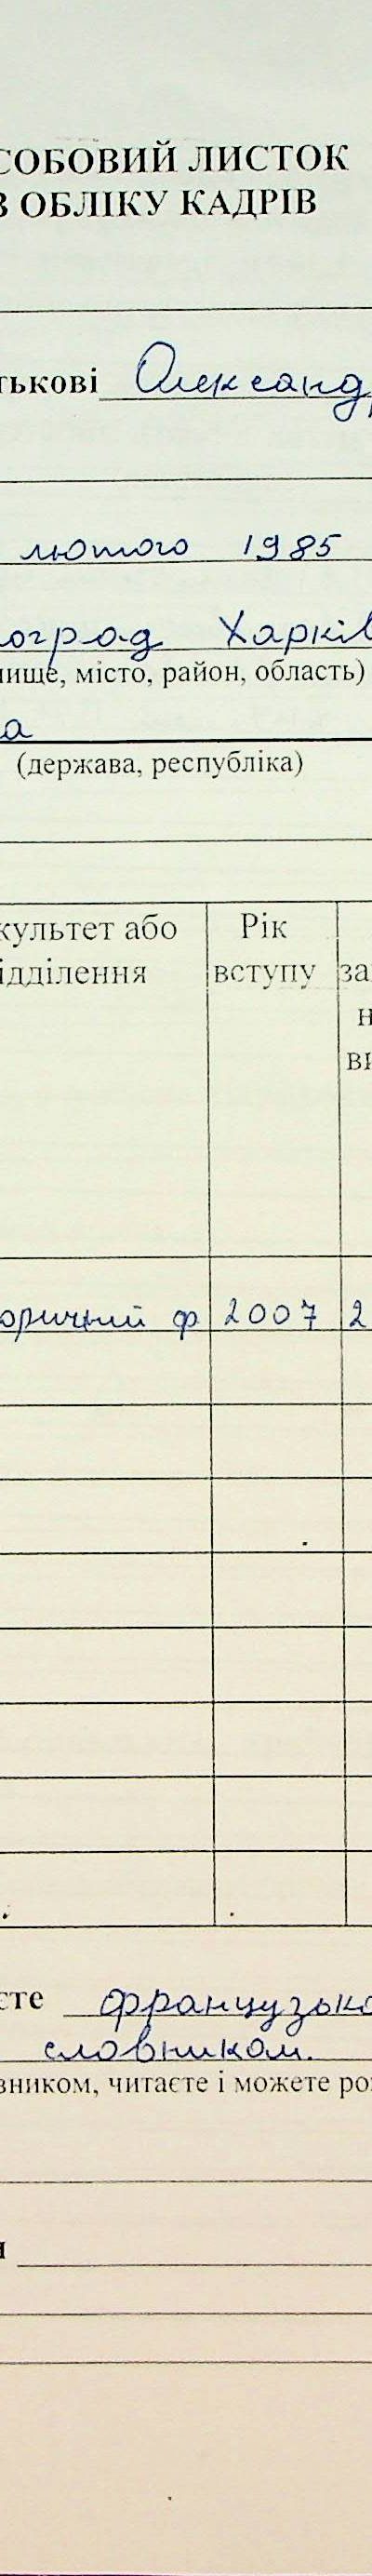 СОБОВИЙ ЛИСТОК
З ОБЛІКУ КАДРІВ
тькові Олександр
лютого 1985
оград Харків
лище, місто, район, область)
а
(держава, республіка)
культет або Рік
ідділення вступу за
н
ви
оричний ф 2007 2
єте французько
словником.
вником, читаєте і можете ро
и